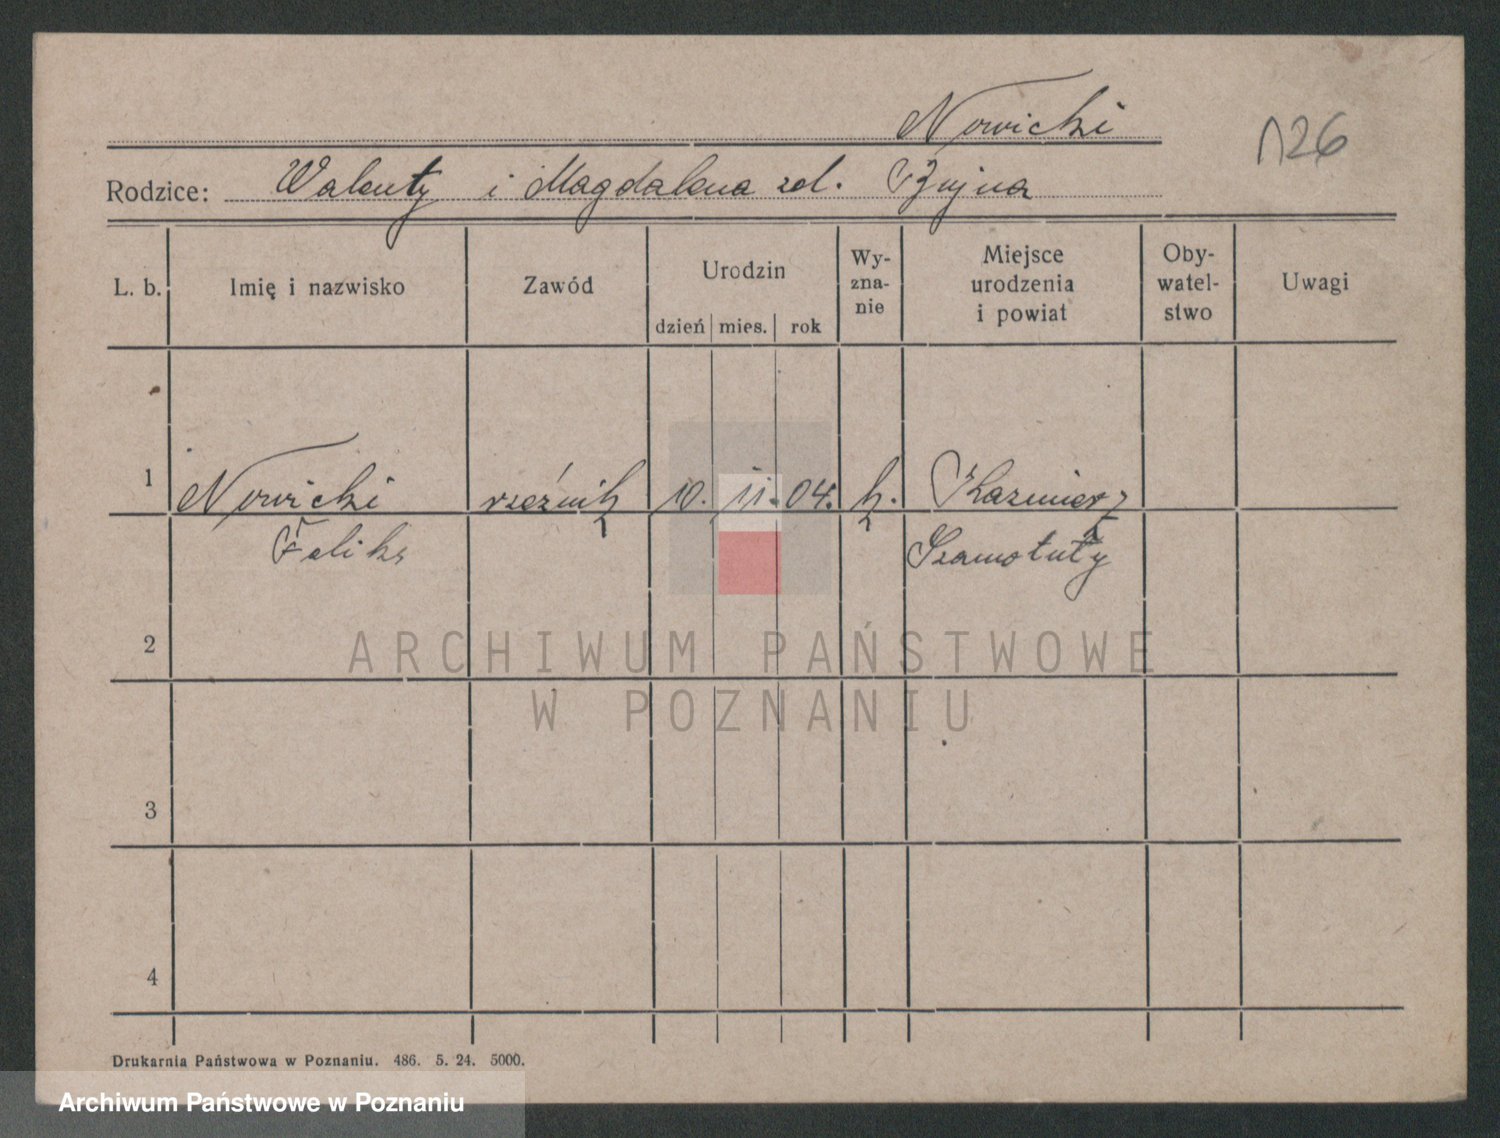 Nowicki
126
Rodzice: Walenty i Magdalena zd.
L. b. Imię i nazwisko Zawód Urodzin dzień mies. rok Wy-zna-nie Miejsce urodzenia i powiat Oby-watel-stwo Uwagi
1 Nowicki rzeźnik 10. 11. 04. k. Kazmierz
Feliks Szamotuły
2
ARCHIWUM PAŃSTWOWE
W POZNANIU
3
4
Drukarnia Państwowa w Poznaniu. 486. 5. 24. 5000.
Archiwum Państwowe w Poznaniu